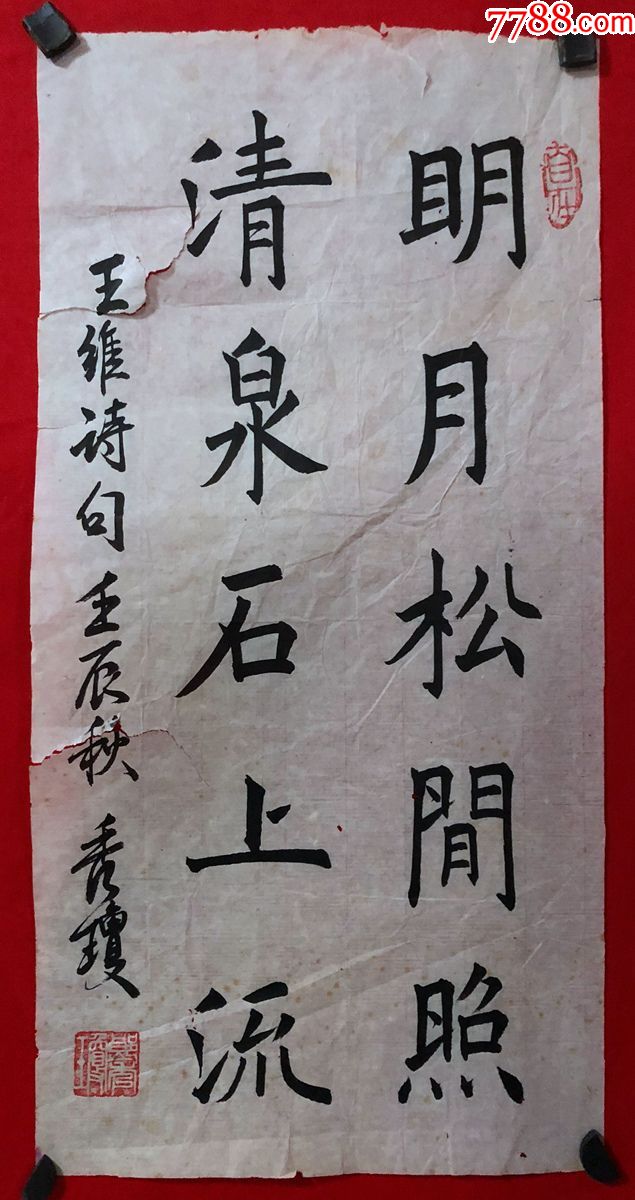 7788.com
明月松閒照
清泉石上流
王維诗句壬辰秋 秀瓊